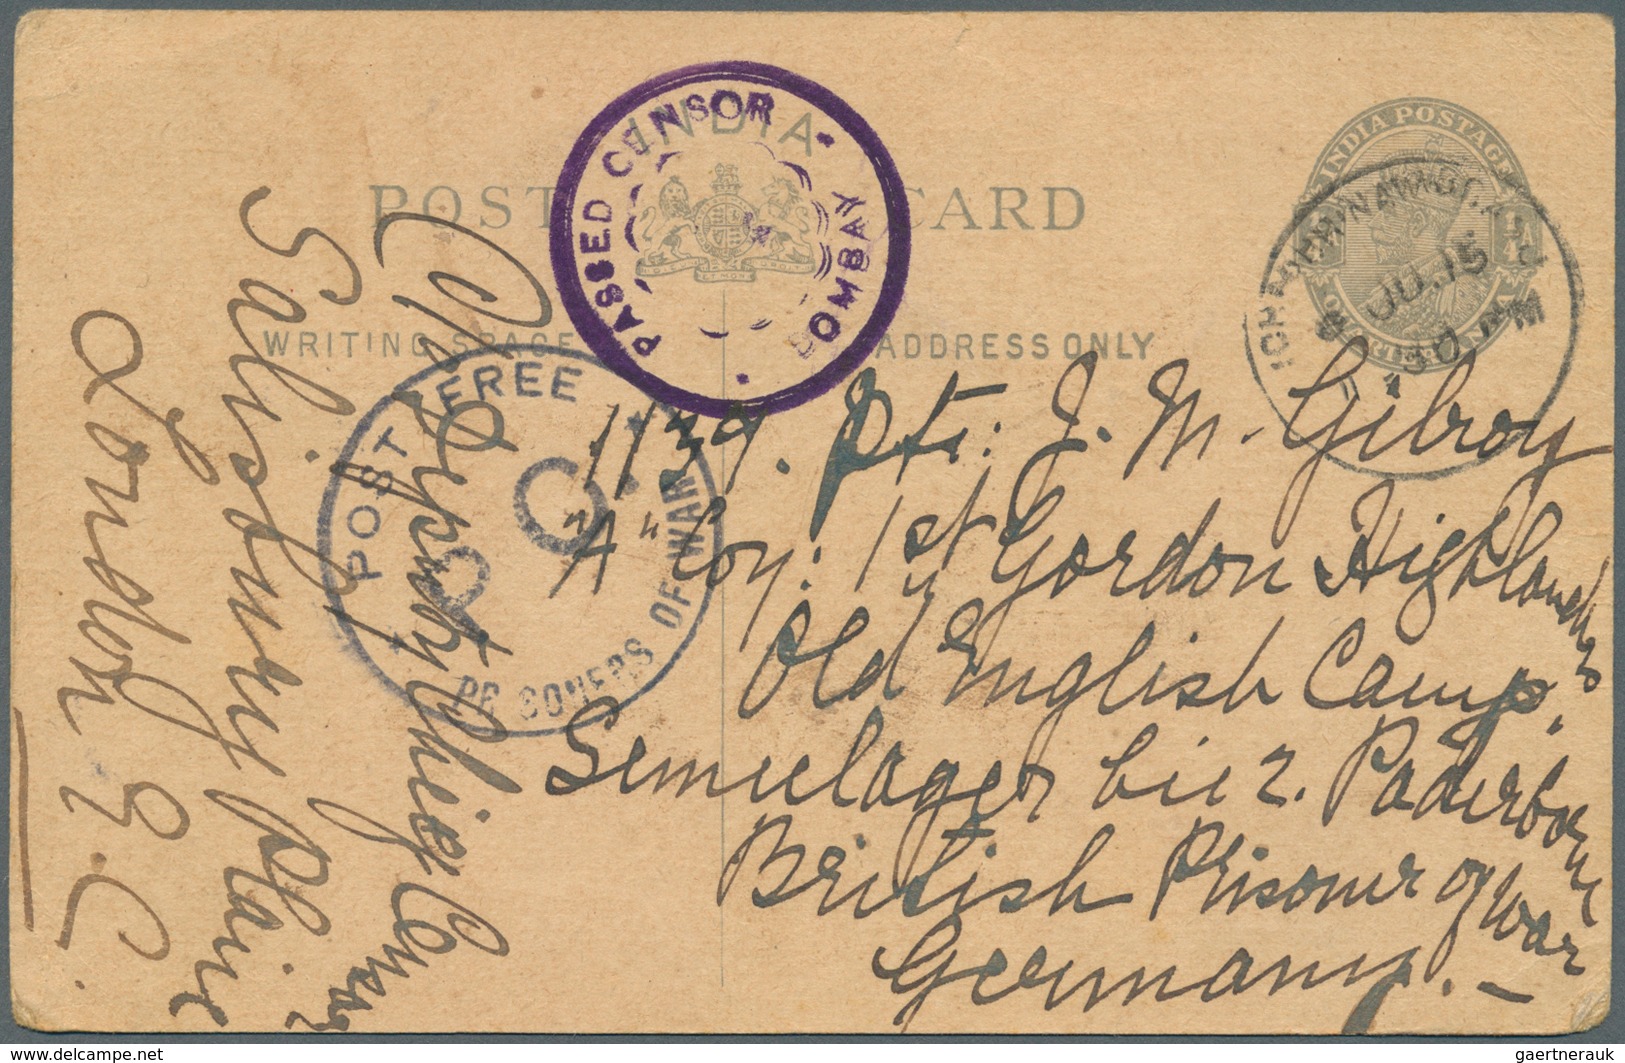 INDIA
POST CARD
WRITING SPACE
ADDRESS ONLY
INDIA POSTAGE
PASSED CENSOR
BOMBAY
JU.15
POST FREE
PRISONERS OF WAR
1139. Pte: J. M. Gilroy
"A" Coy: 1st Gordon Highlanders
Old English Camp,
Sennelager bie 2. Paderborn
British Prisoner of War
Germany. -
Deputy Chief Censor
Salisbury Plain
London E. C.
delcampe.net
gaertnerauk